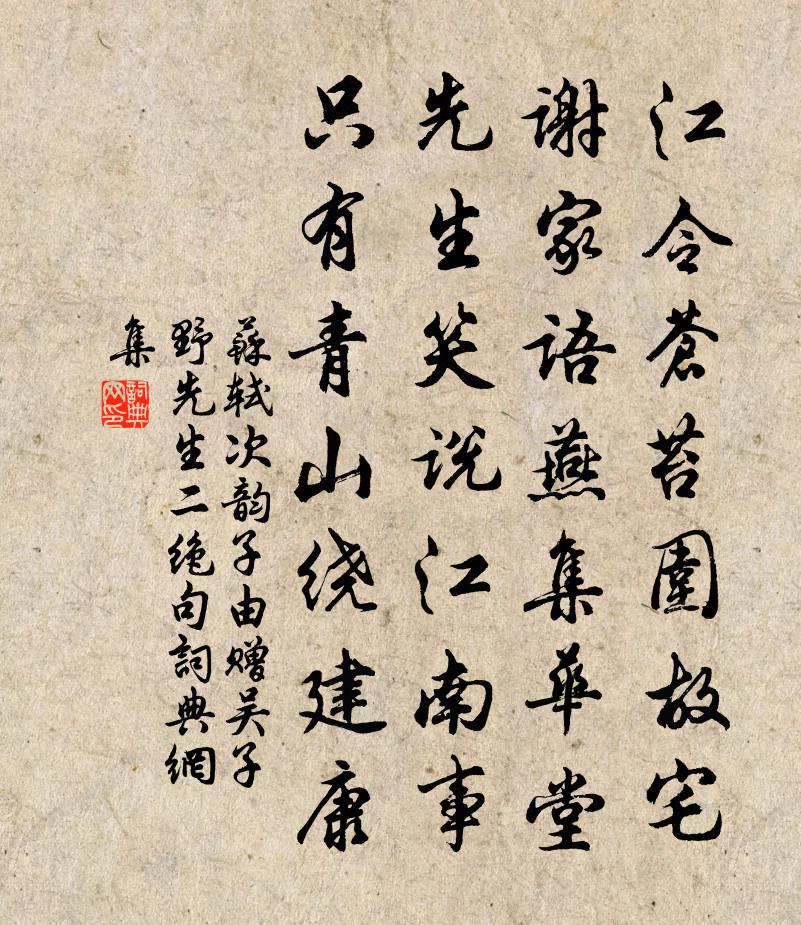 江令蒼苔圍故宅
謝家語燕集華堂
先生笑说江南事
只有青山绕建康
蘇轼次韵子由赠吴子
野先生二绝句詞典網
集
詞典
网印